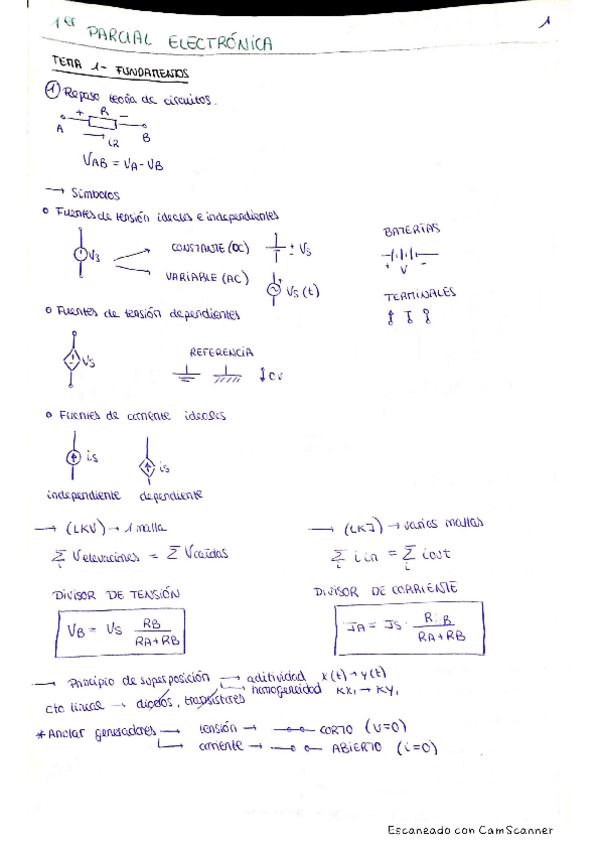 1er PARCIAL ELECTRÓNICA
1
TEMA 1- FUNDAMENTOS
① Repaso teoría de circuitos.
+ R −
A iR B
VAB = VA - VB
→ Símbolos
o Fuentes de tensión ideales e independientes
BATERÍAS
Vs CONSTANTE (DC) ± Vs
+ V −
VARIABLE (AC) Vs (t)
TERMINALES
o Fuentes de tensión dependientes
Vs REFERENCIA
↓ 0V
o Fuentes de corriente ideales
is is
independiente dependiente
→ (LKV) → 1 malla
Σi Velevaciones = Σ Vcaídas
DIVISOR DE TENSIÓN
VB = Vs RB / RA+RB
→ (LKI) → varias mallas
Σi iin = Σi iout
DIVISOR DE CORRIENTE
IA = IS · RB / RA+RB
→ Principio de superposición → aditividad x(t) → y(t)
→ homogeneidad kx1 → ky1
cto lineal → diodos, transistores
* Anular generadores → tensión → CORTO (v=0)
→ corriente → ABIERTO (i=0)
Escaneado con CamScanner